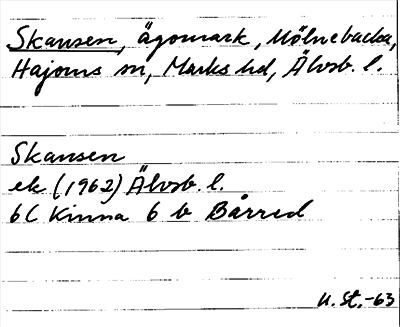 Skansen, ägomark, Mölnebacka,
Hajoms sn, Marks hd, Älvsb. l.
Skansen
ek (1962) Älvsb. l.
6C Kinna 6 b Bårred
U. St. -63